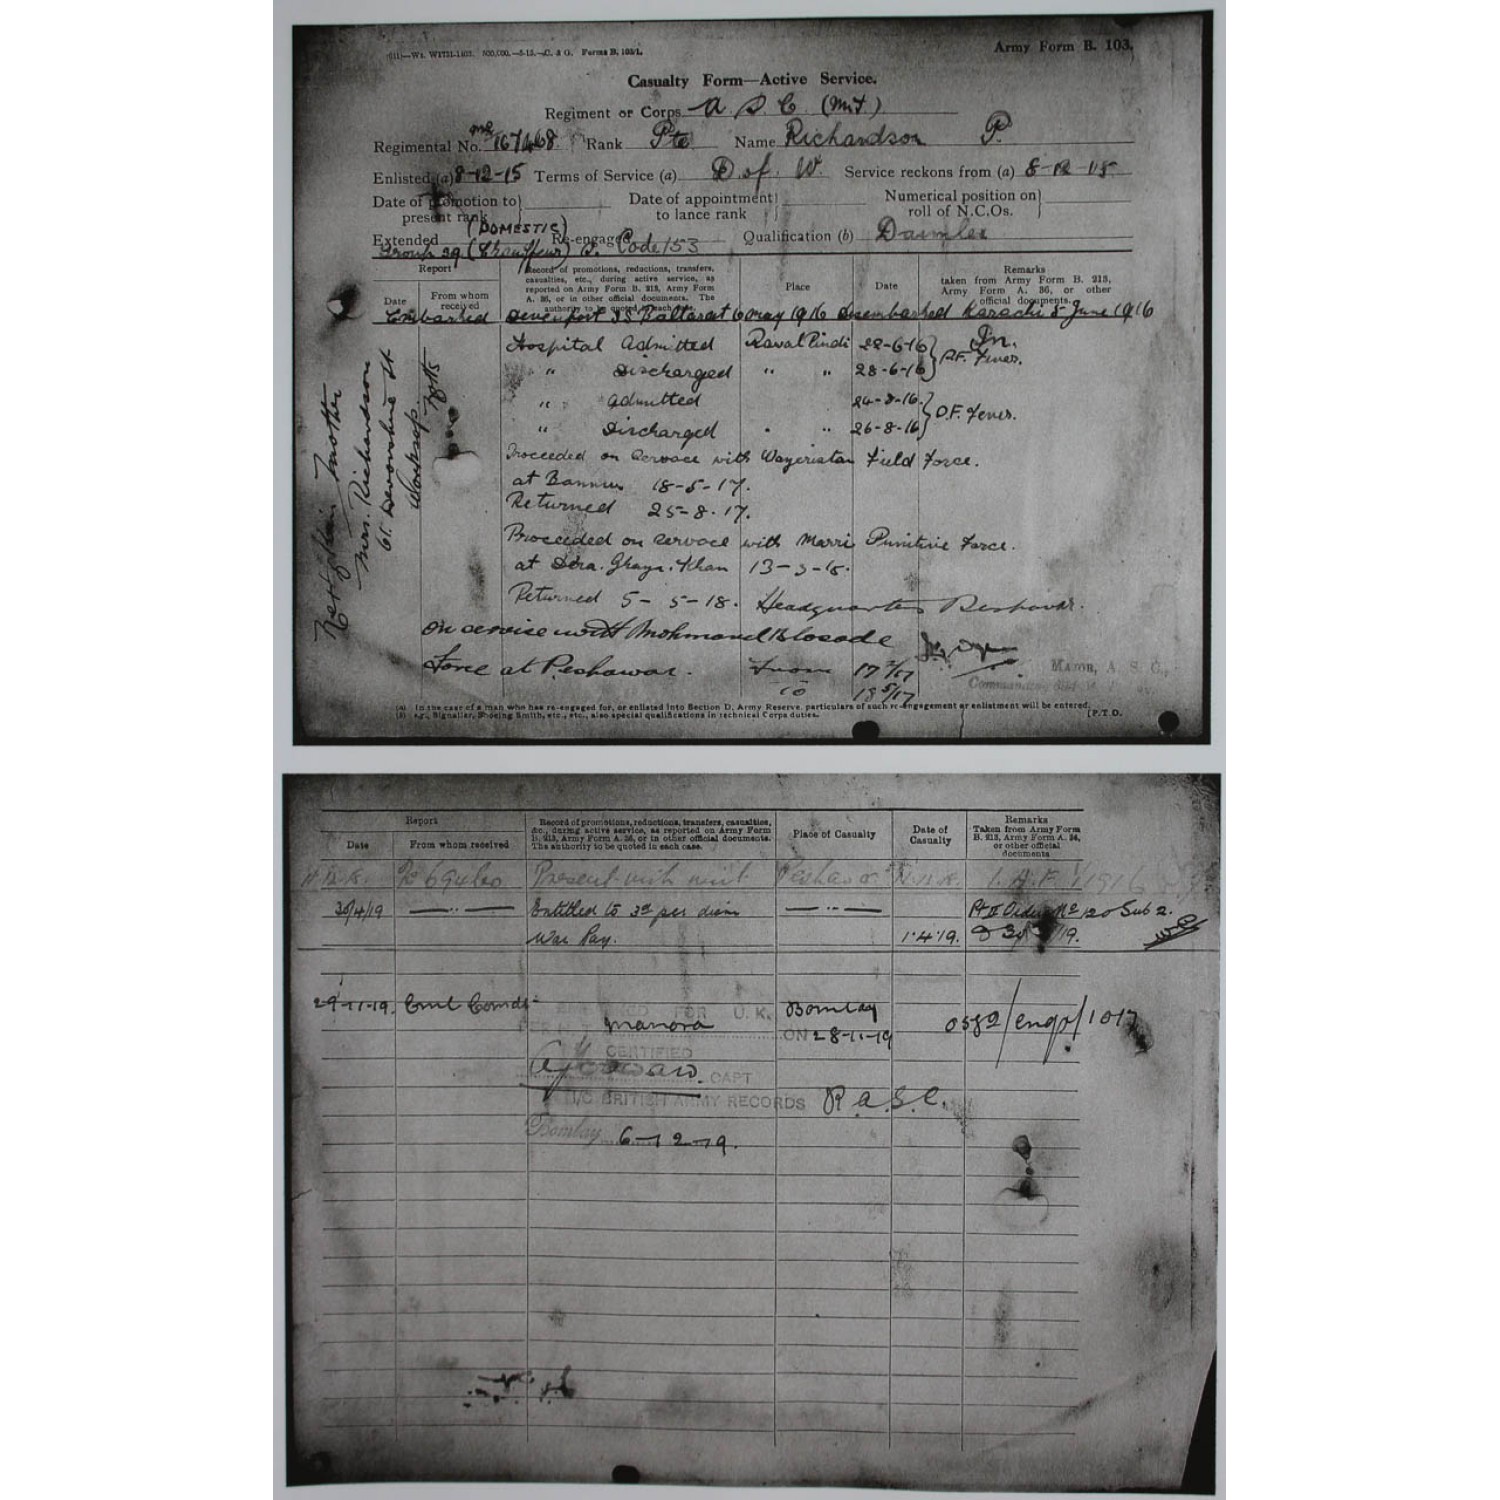 Army Form B. 103.
Casualty Form—Active Service.
Regiment or Corps A. S. C. (M.T.)
Regimental No. 167468 Rank Pte Name Richardson P.
Enlisted (a) 8-12-15 Terms of Service (a) D. of W. Service reckons from (a) 8-12-15
Date of promotion to present rank Date of appointment to lance rank Numerical position on roll of N.C.Os.
(DOMESTIC)
Extended Re-engaged Qualification (b) Daimler
Group 29 (Chauffeur) Code 153
Report
Date
From whom received
Record of promotions, reductions, transfers,
casualties, etc., during active service, as
reported on Army Form B. 213, Army Form
A. 36, or in other official documents. The
authority to be quoted in each case.
Place
Date
Remarks
taken from Army Form B. 213,
Army Form A. 36, or other
official documents.
Embarked Devonport SS Ballarat 6 May 1916 disembarked Karachi 5 June 1916
Hospital Admitted Rawal Pindi 22-6-16
" Discharged " " 28-6-16 P.F. Fever.
" admitted 24-8-16
" Discharged " 26-8-16 D.F. Fever.
Proceeded on service with Wazeristan Field Force.
at Bannu 18-5-17.
Returned 25-8-17.
Proceeded on service with Marri Punitive Force.
at Dera. Ghazi. Khan 13-3-18.
Returned 5-5-18. Headquarters Peshawar.
on service with Mohmand Blocade
Force at Peshawar. From
to
Major, A. S. C.,
Next of kin Mother
Mrs. Richardson
61. Devonshire St
Worksop.
Notts
(a) In the case of a man who has re-engaged for, or enlisted into Section D, Army Reserve, particulars of such re-engagement or enlistment will be entered.
(b) e.g., Signaller, Shoeing Smith, etc., etc., also special qualifications in technical Corps duties.
[P.T.O.
Report
Date
From whom received
Record of promotions, reductions, transfers, casualties,
&c., during active service, as reported on Army Form
B. 213, Army Form A. 36, or in other official documents.
The authority to be quoted in each case.
Place of Casualty
Date of Casualty
Remarks
Taken from Army Form
B. 213, Army Form A. 36,
or other official
documents
Present with unit Peshawar
30/4/19 Entitled to 3d per diem Pt II Order No 120 Sub 2.
War Pay. 1.4.19.
29-11-19. Embarked FOR U.K. Bombay
Manora ON 28-11-19
CERTIFIED
CAPT
I/C BRITISH ARMY RECORDS R.A.S.C.
Bombay 6-12-19.